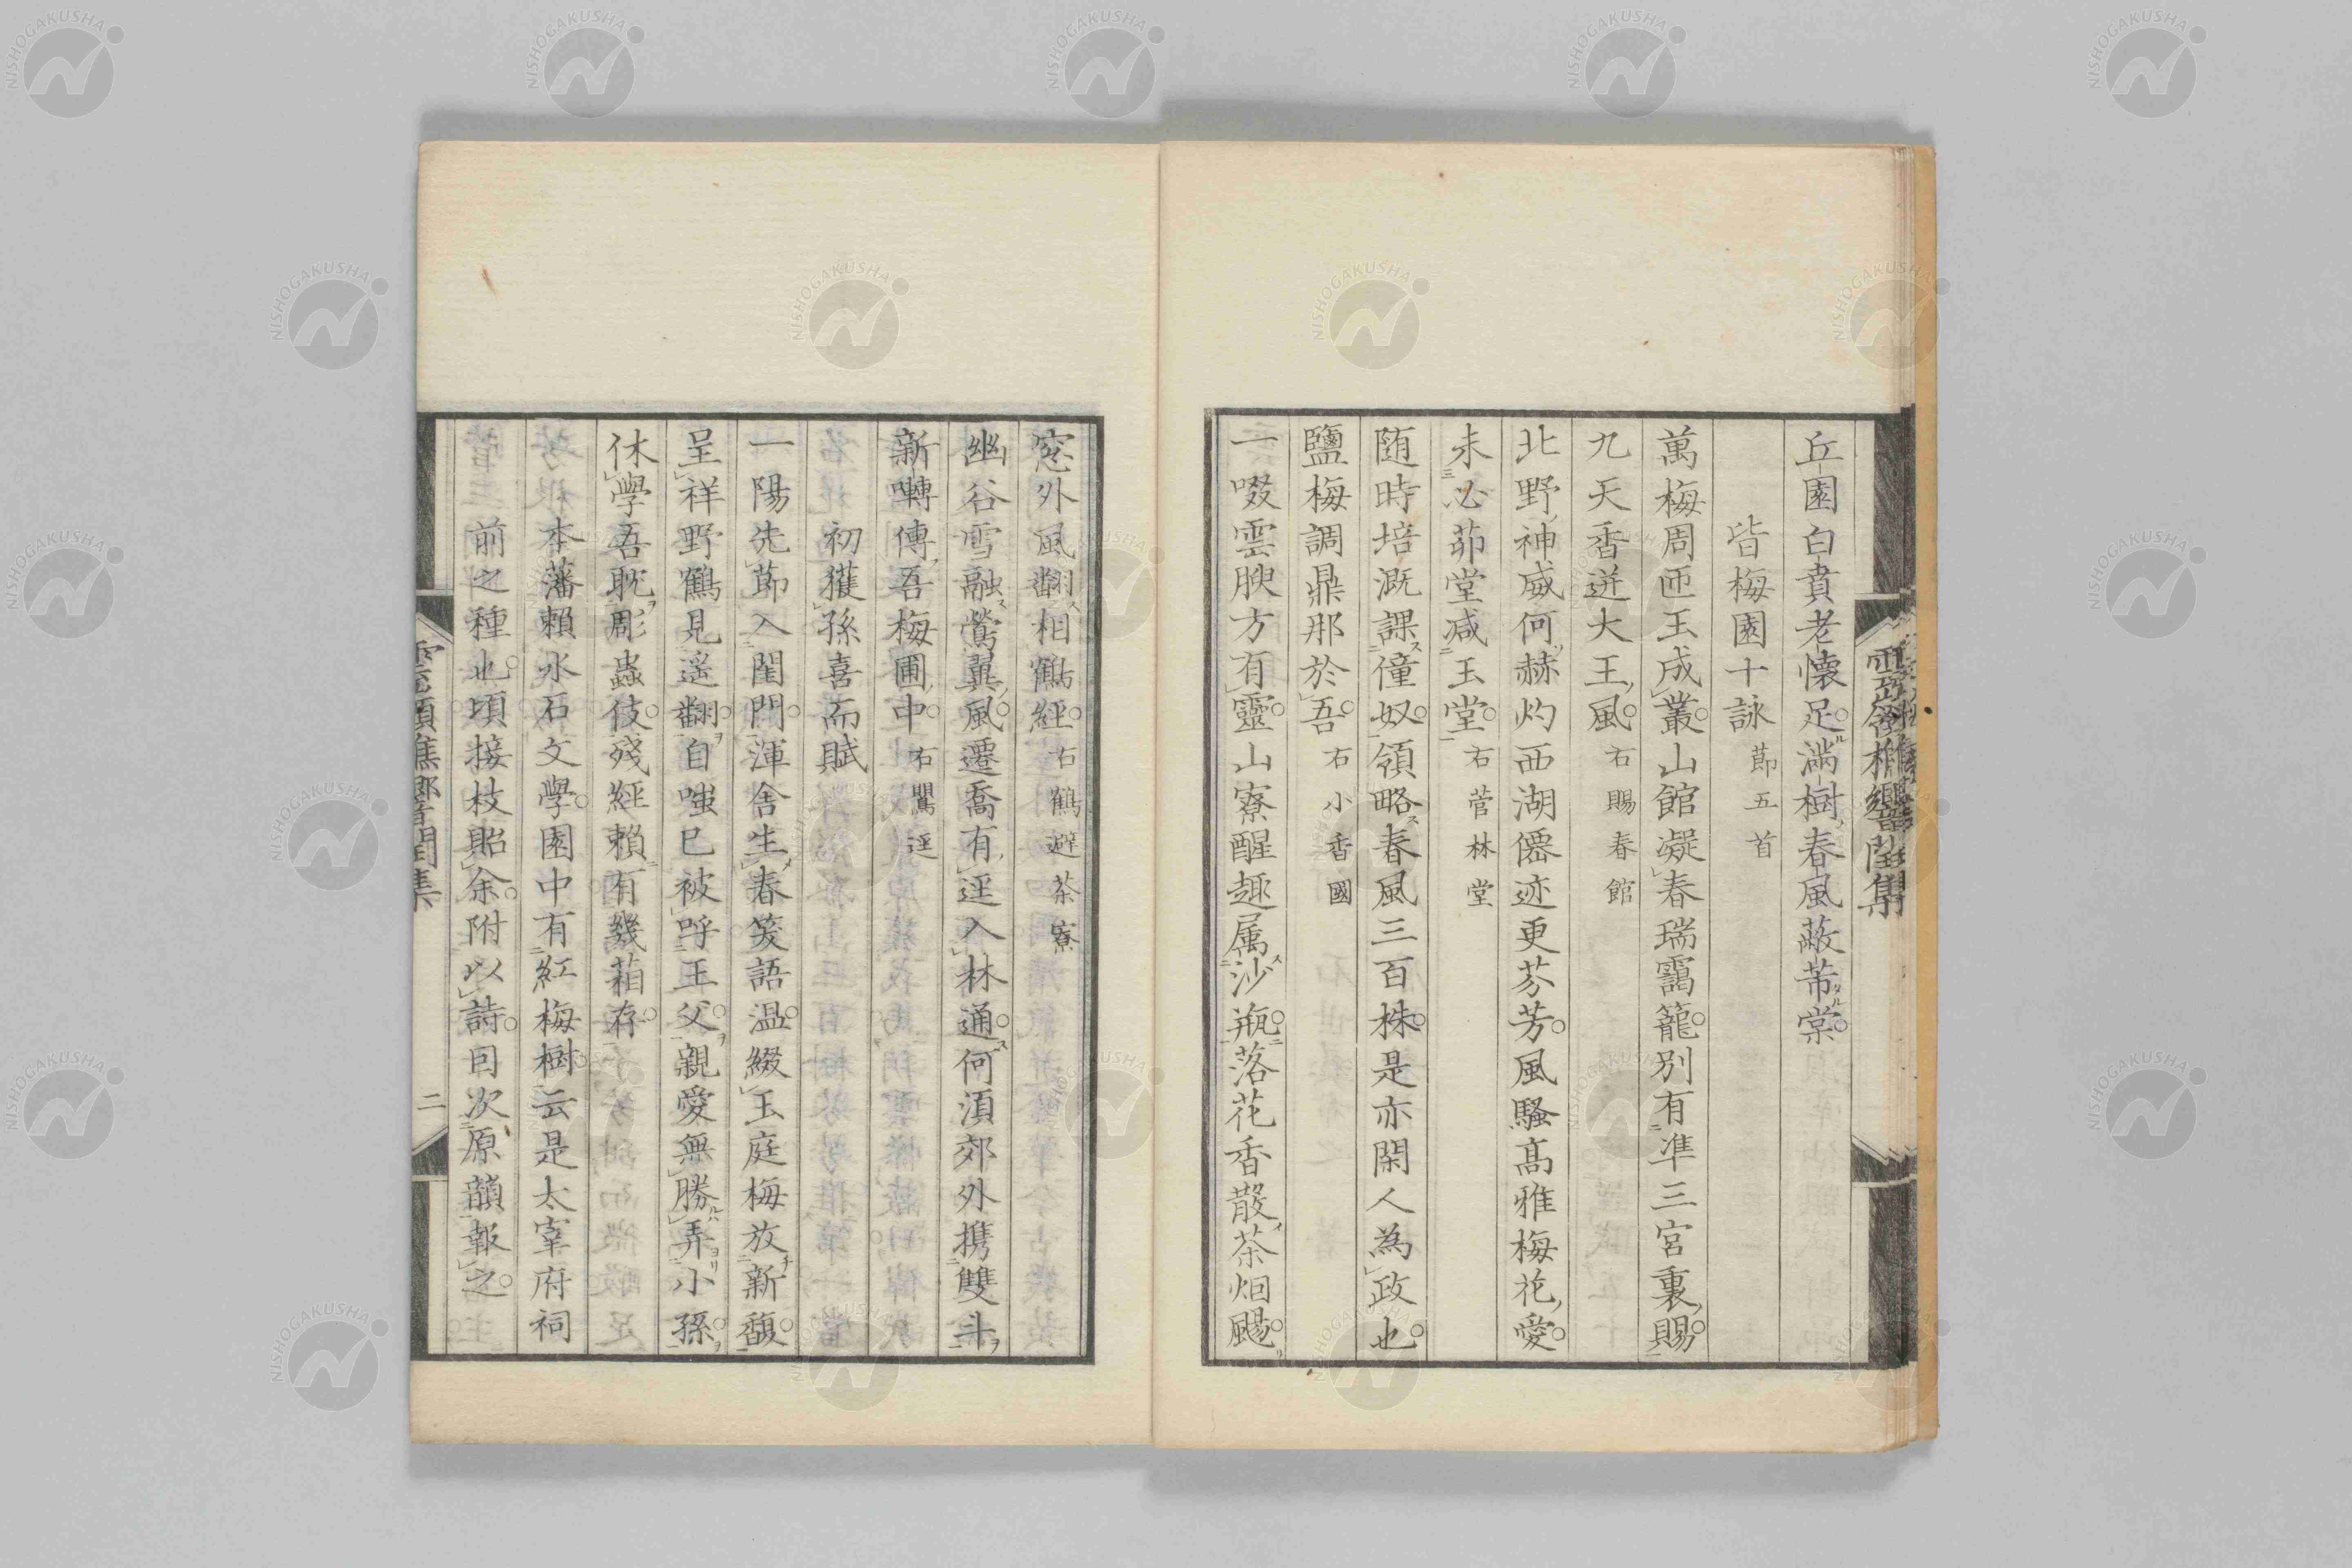 丘園白賁老懷足滿樹春風蔽芾棠
皆梅園十詠節五首
萬梅周匝玉成叢山館凝春瑞靄籠別有準三宮裏賜
九天香迸大王風右賜春館
北野神威何赫灼西湖僊迹更芬芳風騷高雅梅花愛
未必茆堂减玉堂右菅林堂
随時培溉課僮奴領略春風三百株是亦閑人為政也
鹽梅調鼎那於吾右小香國
一啜雲腴方有靈山寮醒趣属沙瓶落花香散茶烟颺
窓外風翻相鶴經右鶴避茶寮
幽谷雪融鶯翼風遷喬有逕入林通何湏郊外携雙斗
新囀傳吾梅圃中右鸎逕
初獲孫喜而賦
一陽先節入閨門渾舍生春笑語温綴玉庭梅放新馥
呈祥野鶴見遥翻自嗤已被呼王父親愛無勝弄小孫
休學吾耽彫蟲伎殘經賴有幾葙存
本藩賴水石文學園中有紅梅樹云是太宰府祠
前之種也頃接枝貽余附以詩目次原韻報之
二
NISHOGAKUSHA